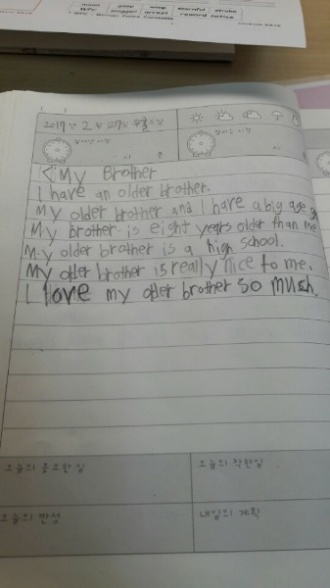 2019년 2월 27일 요일
일어난 시각
잠자는 시각
시 분
시
<My Brother
I have an older brother.
My older brother and I have a big age
My brother is eight years older than me
My older brother is a high school.
My older brother is really nice to me.
I love my older brother so much.
오늘의 중요한 일
오늘의 착한일
오늘의 반성
내일의 계획